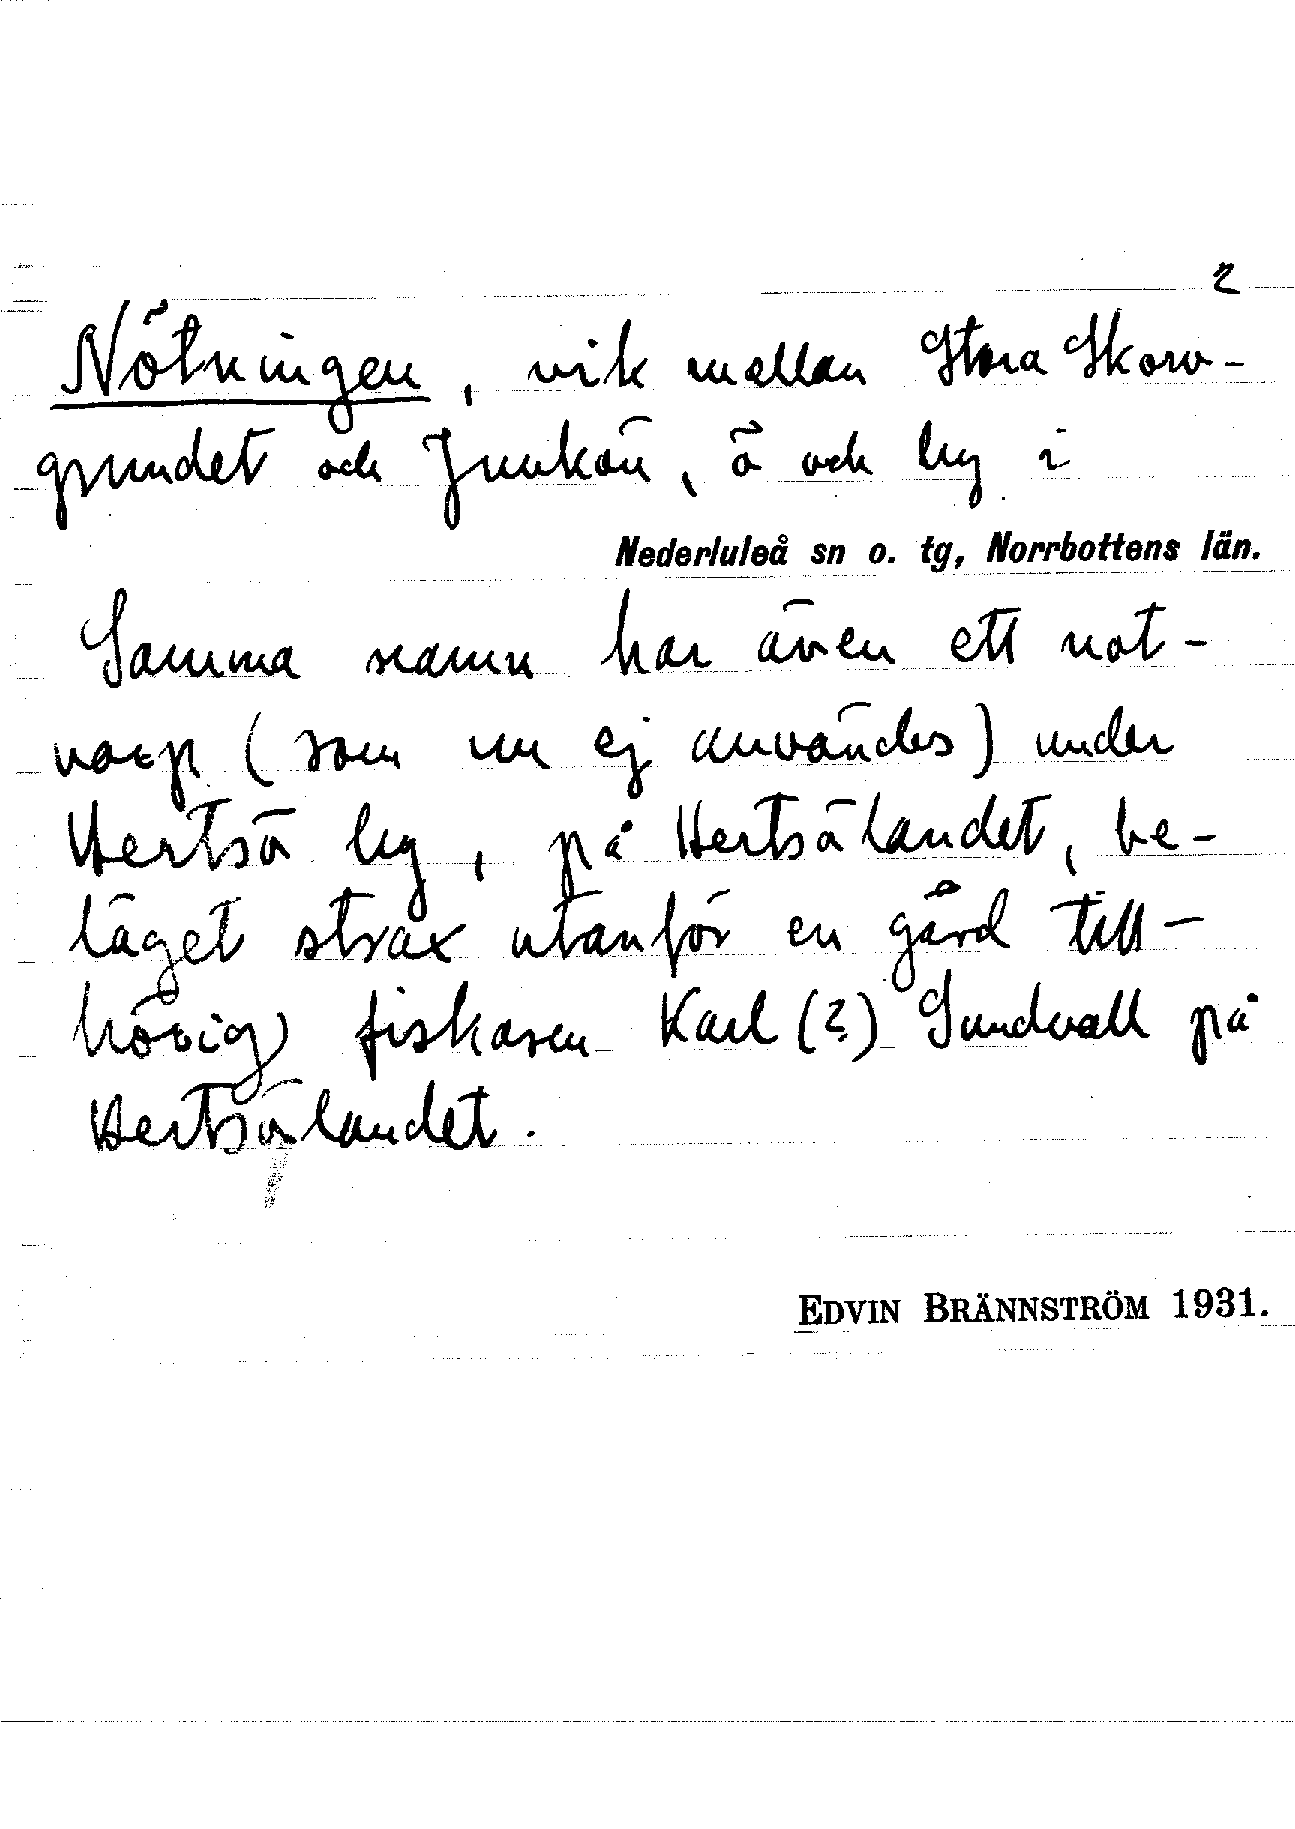 2
Nötningen, vik mellan Stora Skorv-
grundet och Junkön, ö och by i
Nederluleå sn o. tg, Norrbottens län.
Samma namn har även ett not-
varp (som nu ej användes) under
Hertsö by, på Hertsölandet, be-
läget strax utanför en gård till-
hörig fiskaren Karl (?) Sundvall på
Hertsölandet.
EDVIN BRÄNNSTRÖM 1931.